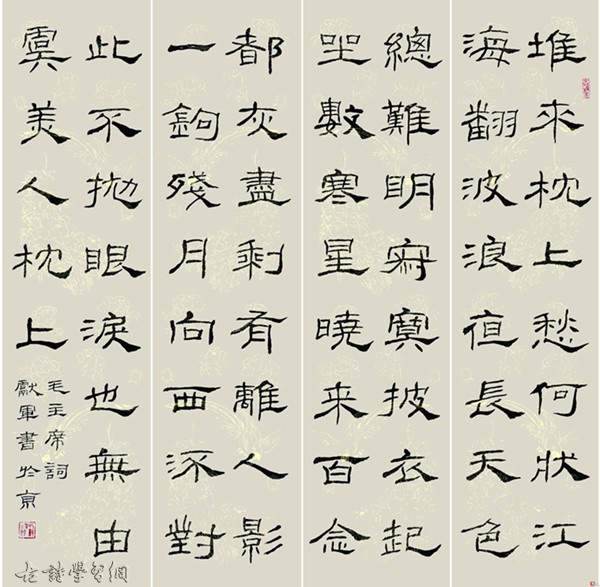 堆來枕上愁何狀江
海翻波浪夜長天色
總難明寂寞披衣起
坐數寒星曉来百念
都灰盡剩有離人影
一鉤殘月向西流對
此不拋眼淚也無由
虞美人枕上
毛主席詞
獻軍書於京